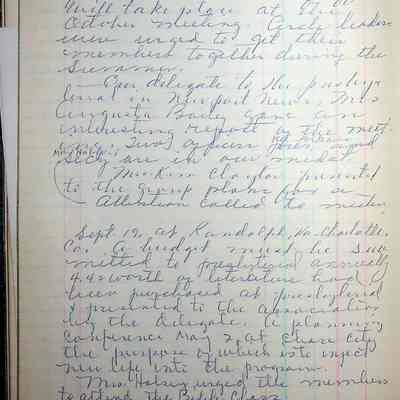 will take place at the
October meeting. Circle leaders
were urged to get their
members together during the
Summer.
Our delegate to the presbyte
rial in Newport News, Mrs
Augusta Baily gave an
interesting report of the meet
ing. Two officers
secty are in our midst
Mrs. Kim Clayton presented
to the group plans for a
Attention called to meeting
Sept. 19, at Randolph, Va. Charlotte
Co. A budget must be sub
mitted to presbyterial annually
4.40 worth of literature had
been purchased at presbyterial
& presented to the association
by the delegate. A planning
Conference May 29 at Chase City
the purpose of which is to inject
new life into the program.
Mrs. Halsey urged the members
to attend the Bible Class